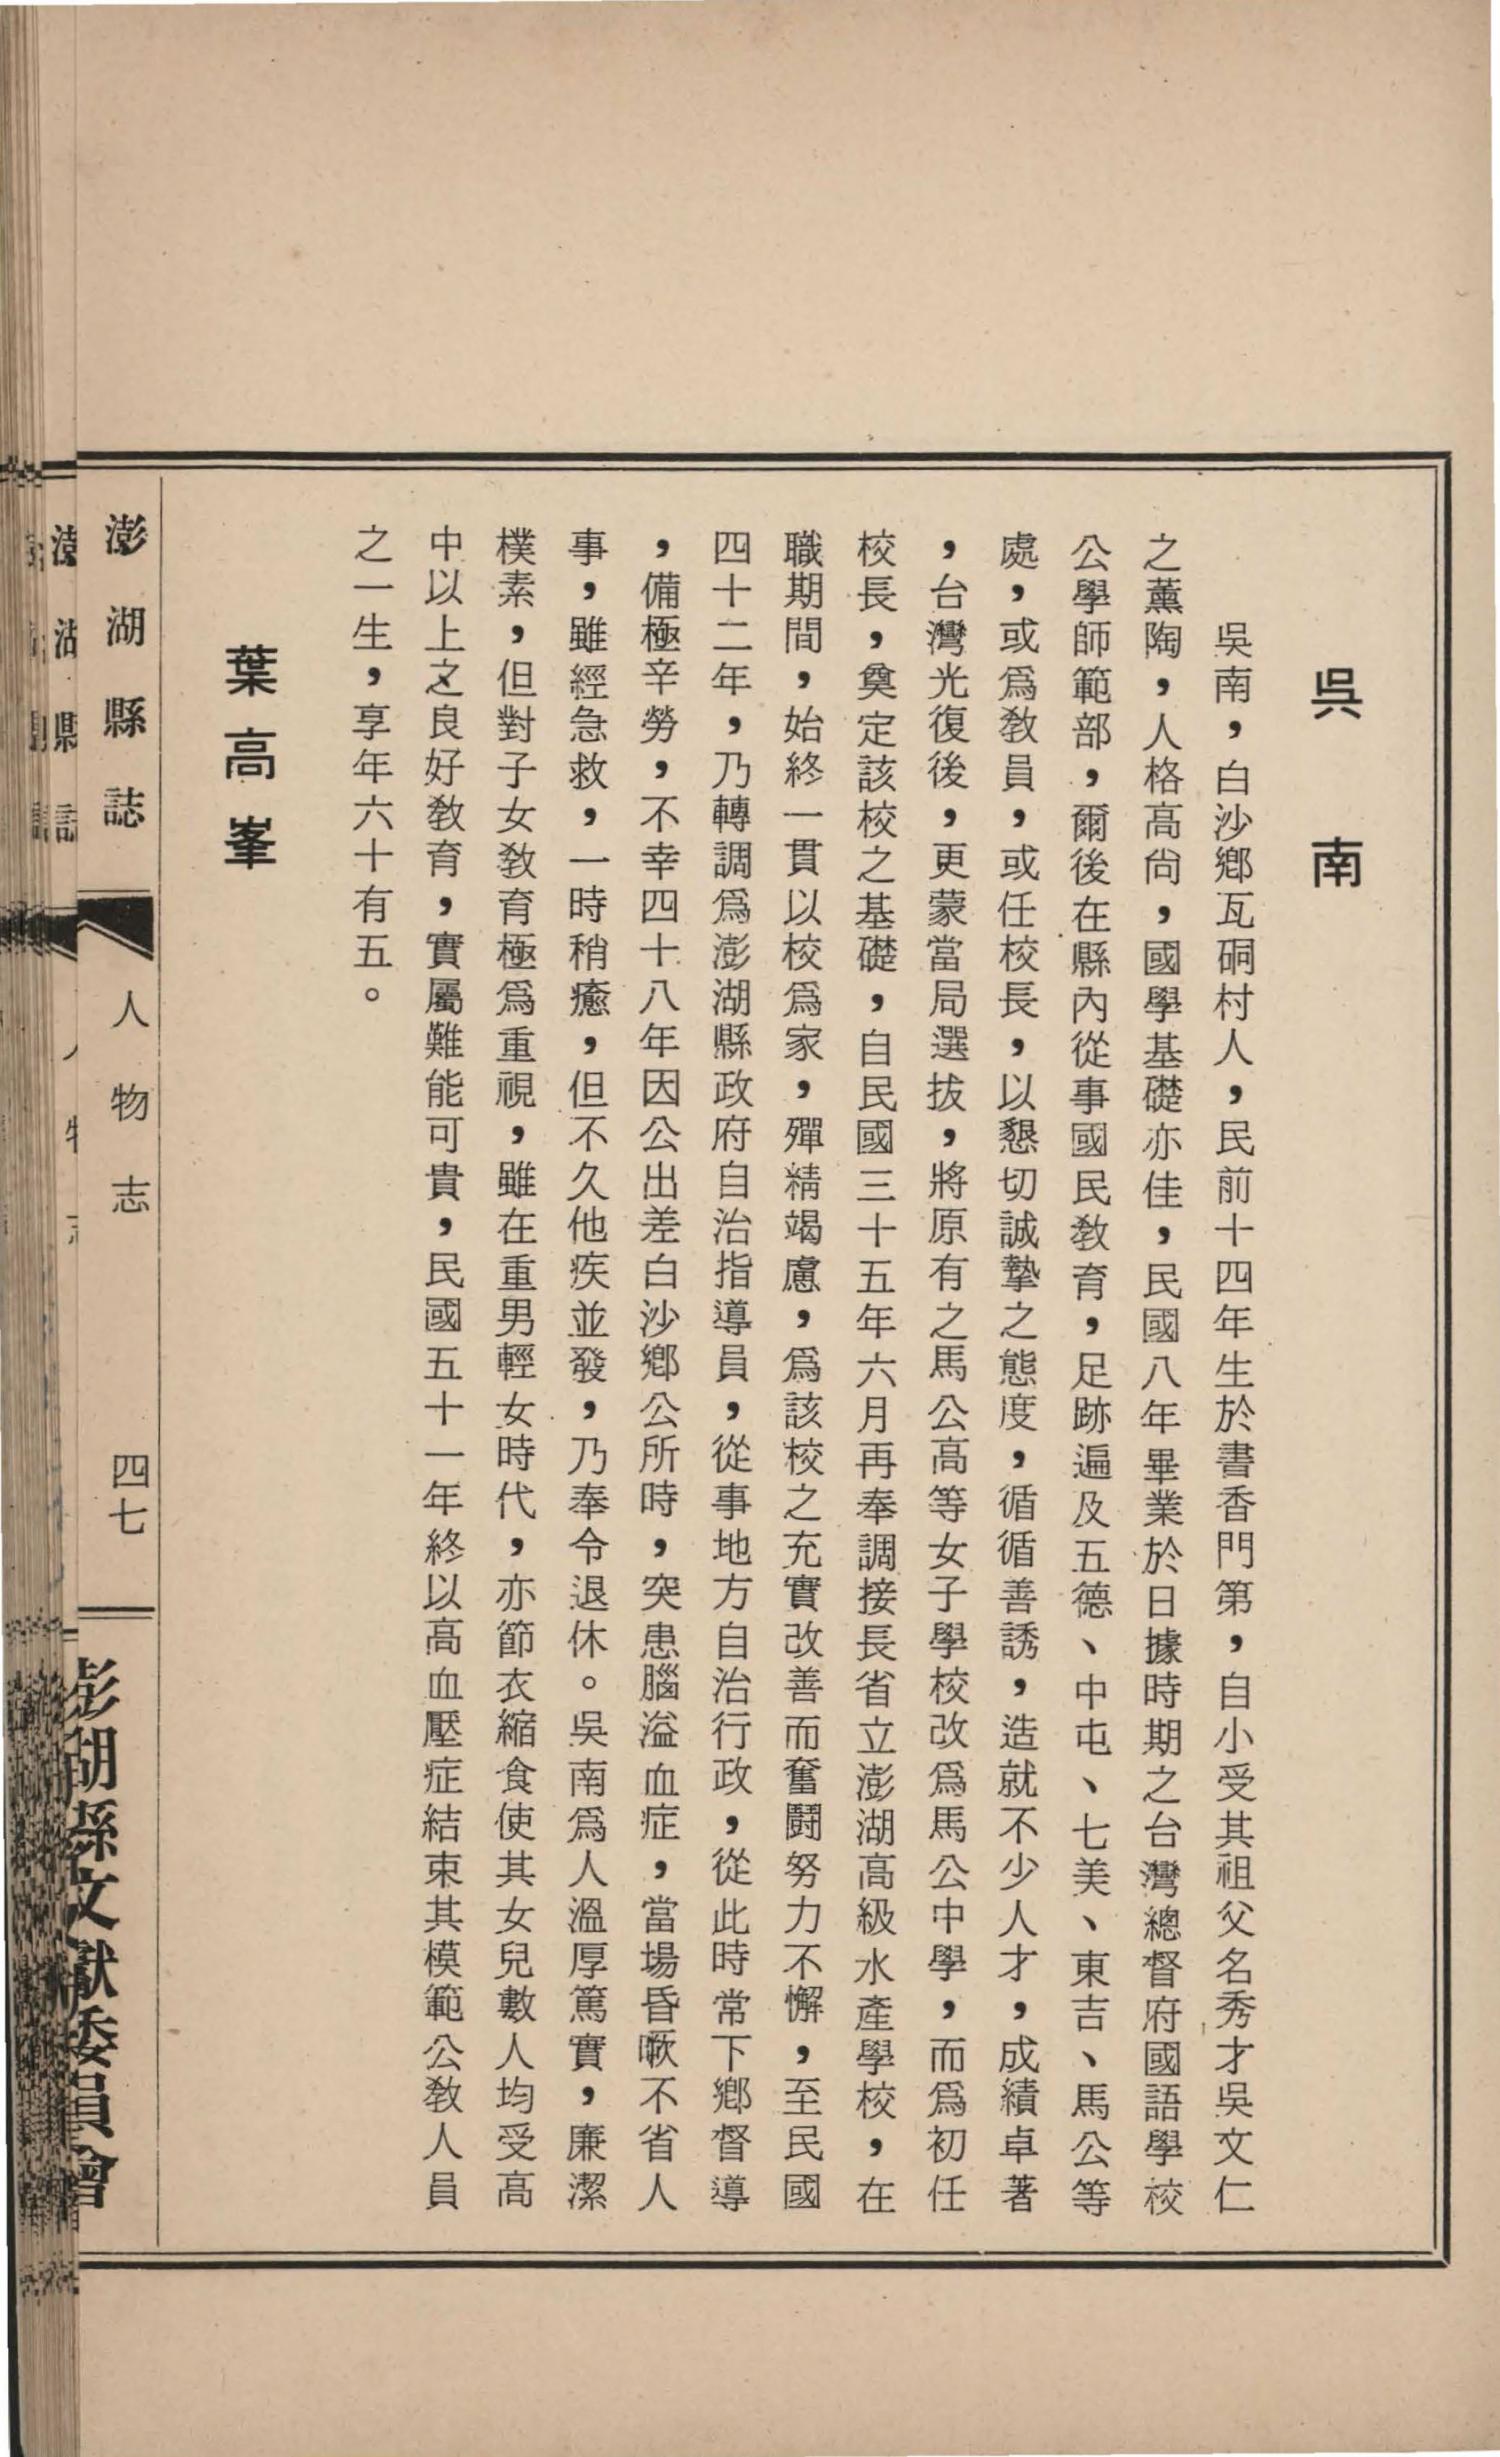 吳南
吳南，白沙鄉瓦硐村人，民前十四年生於書香門第，自小受其祖父名秀才吳文仁
之薰陶，人格高尙，國學基礎亦佳，民國八年畢業於日據時期之台灣總督府國語學校
公學師範部，爾後在縣內從事國民教育，足跡遍及五德、中屯、七美、東吉、馬公等
處，或爲敎員，或任校長，以懇切誠摯之態度，循循善誘，造就不少人才，成績卓著
，台灣光復後，更蒙當局選拔，將原有之馬公高等女子學校改爲馬公中學，而爲初任
校長，奠定該校之基礎，自民國三十五年六月再奉調接長省立澎湖高級水產學校，在
職期間，始終一貫以校爲家，殫精竭慮，爲該校之充實改善而奮鬪努力不懈，至民國
四十二年，乃轉調爲澎湖縣政府自治指導員，從事地方自治行政，從此時常下鄉督導
，備極辛勞，不幸四十八年因公出差白沙鄉公所時，突患腦溢血症，當場昏噘不省人
事，雖經急救，一時稍癒，但不久他疾並發，乃奉令退休。吳南爲人溫厚篤實，廉潔
樸素，但對子女敎育極爲重視，雖在重男輕女時代，亦節衣縮食使其女兒數人均受高
中以上之良好敎育，實屬難能可貴，民國五十一年終以高血壓症結束其模範公敎人員
之一生，享年六十有五。
葉高峯
澎湖縣誌
人物志
四七
澎湖縣文獻委員會